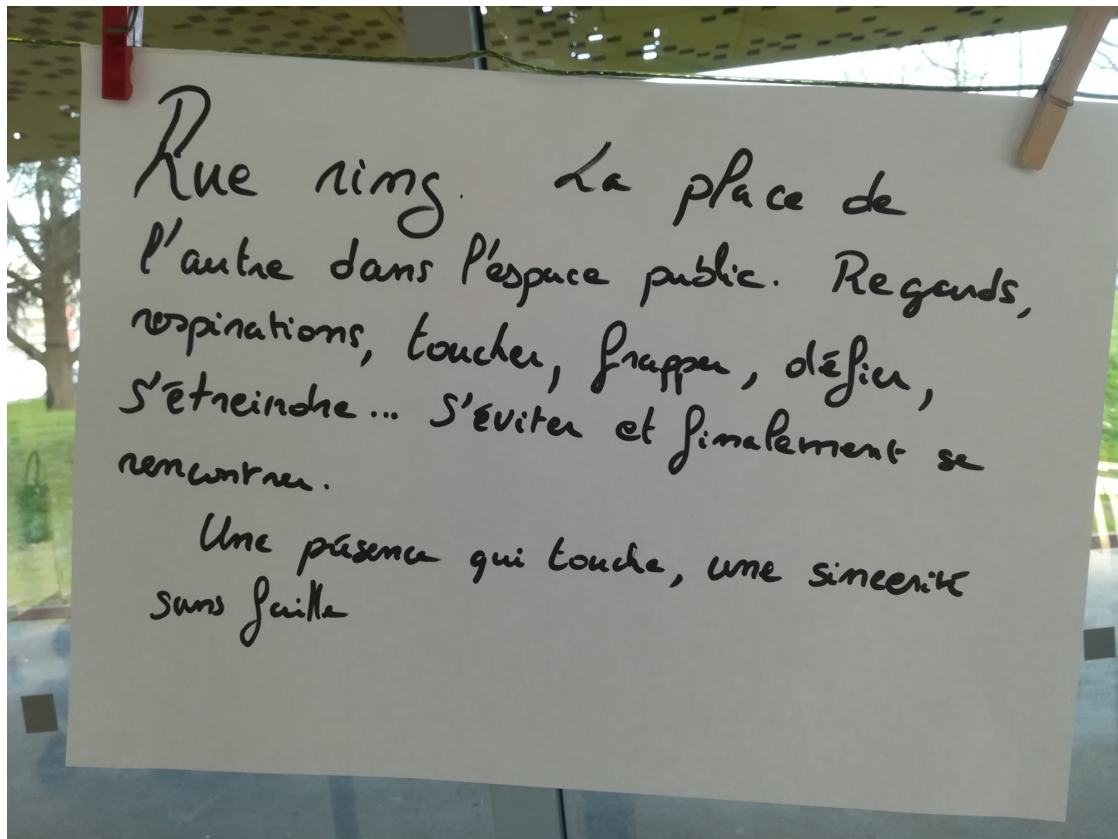 Rue ring. La place de
l'autre dans l'espace public. Regards,
respirations, toucher, frapper, défier,
s'étreindre... s'éviter et finalement se
rencontrer.
Une présence qui touche, une sincérité
sans faille